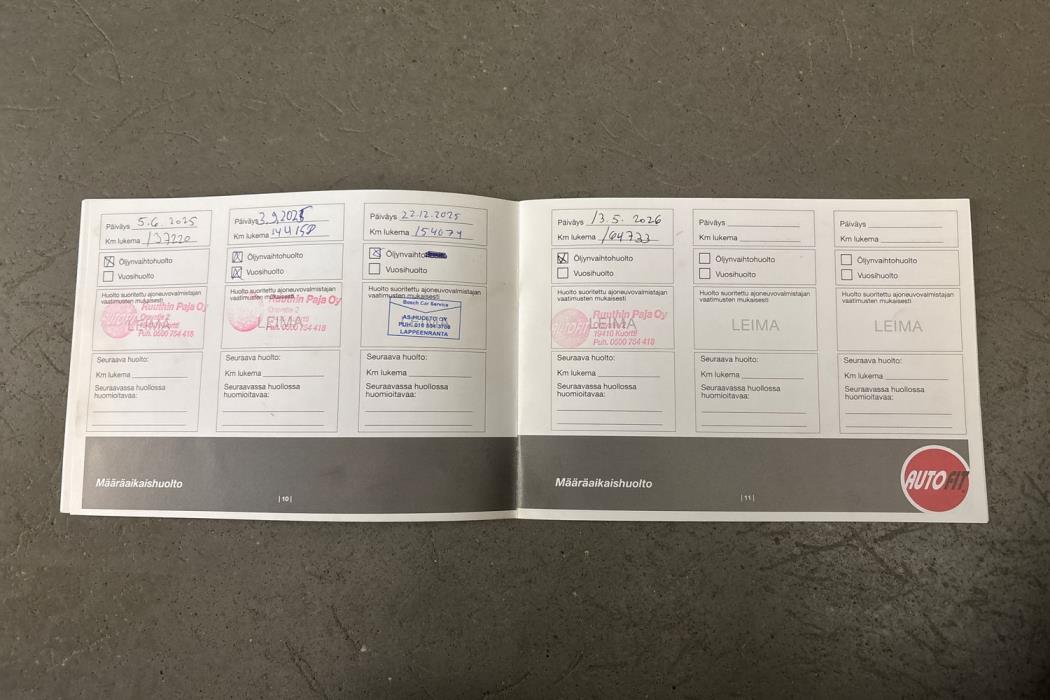 Päiväys 5.6.2025
Km lukema 137220
Öljynvaihtohuolto
Vuosihuolto
Huolto suoritettu ajoneuvovalmistajan
vaatimusten mukaisesti
Ruuthin Paja Oy
Puh. 0500 754 418
Seuraava huolto:
Km lukema
Seuraavassa huollossa
huomioitavaa:
Päiväys 3.9.2025
Km lukema
Öljynvaihtohuolto
Vuosihuolto
Huolto suoritettu ajoneuvovalmistajan
vaatimusten mukaisesti
Ruuthin Paja Oy
LEIMA
Puh. 0500 754 418
Seuraava huolto:
Km lukema
Seuraavassa huollossa
huomioitavaa:
Päiväys 22.12.2025
Km lukema 154074
Öljynvaihtohuolto
Vuosihuolto
Huolto suoritettu ajoneuvovalmistajan
vaatimusten mukaisesti
Bosch Car Service
AS-HUOLTO OY
LAPPEENRANTA
Seuraava huolto:
Km lukema
Seuraavassa huollossa
huomioitavaa:
Määräaikaishuolto
|10|
Päiväys 13.5. 2026
Km lukema 164733
Öljynvaihtohuolto
Vuosihuolto
Huolto suoritettu ajoneuvovalmistajan
vaatimusten mukaisesti
AUTOFIT
Ruuthin Paja Oy
LEIMA
19410 Kuortti
Puh. 0500 754 418
Seuraava huolto:
Km lukema
Seuraavassa huollossa
huomioitavaa:
Päiväys
Km lukema
Öljynvaihtohuolto
Vuosihuolto
Huolto suoritettu ajoneuvovalmistajan
vaatimusten mukaisesti
LEIMA
Seuraava huolto:
Km lukema
Seuraavassa huollossa
huomioitavaa:
Päiväys
Km lukema
Öljynvaihtohuolto
Vuosihuolto
Huolto suoritettu ajoneuvovalmistajan
vaatimusten mukaisesti
LEIMA
Seuraava huolto:
Km lukema
Seuraavassa huollossa
huomioitavaa:
Määräaikaishuolto
|11|
AUTOFIT